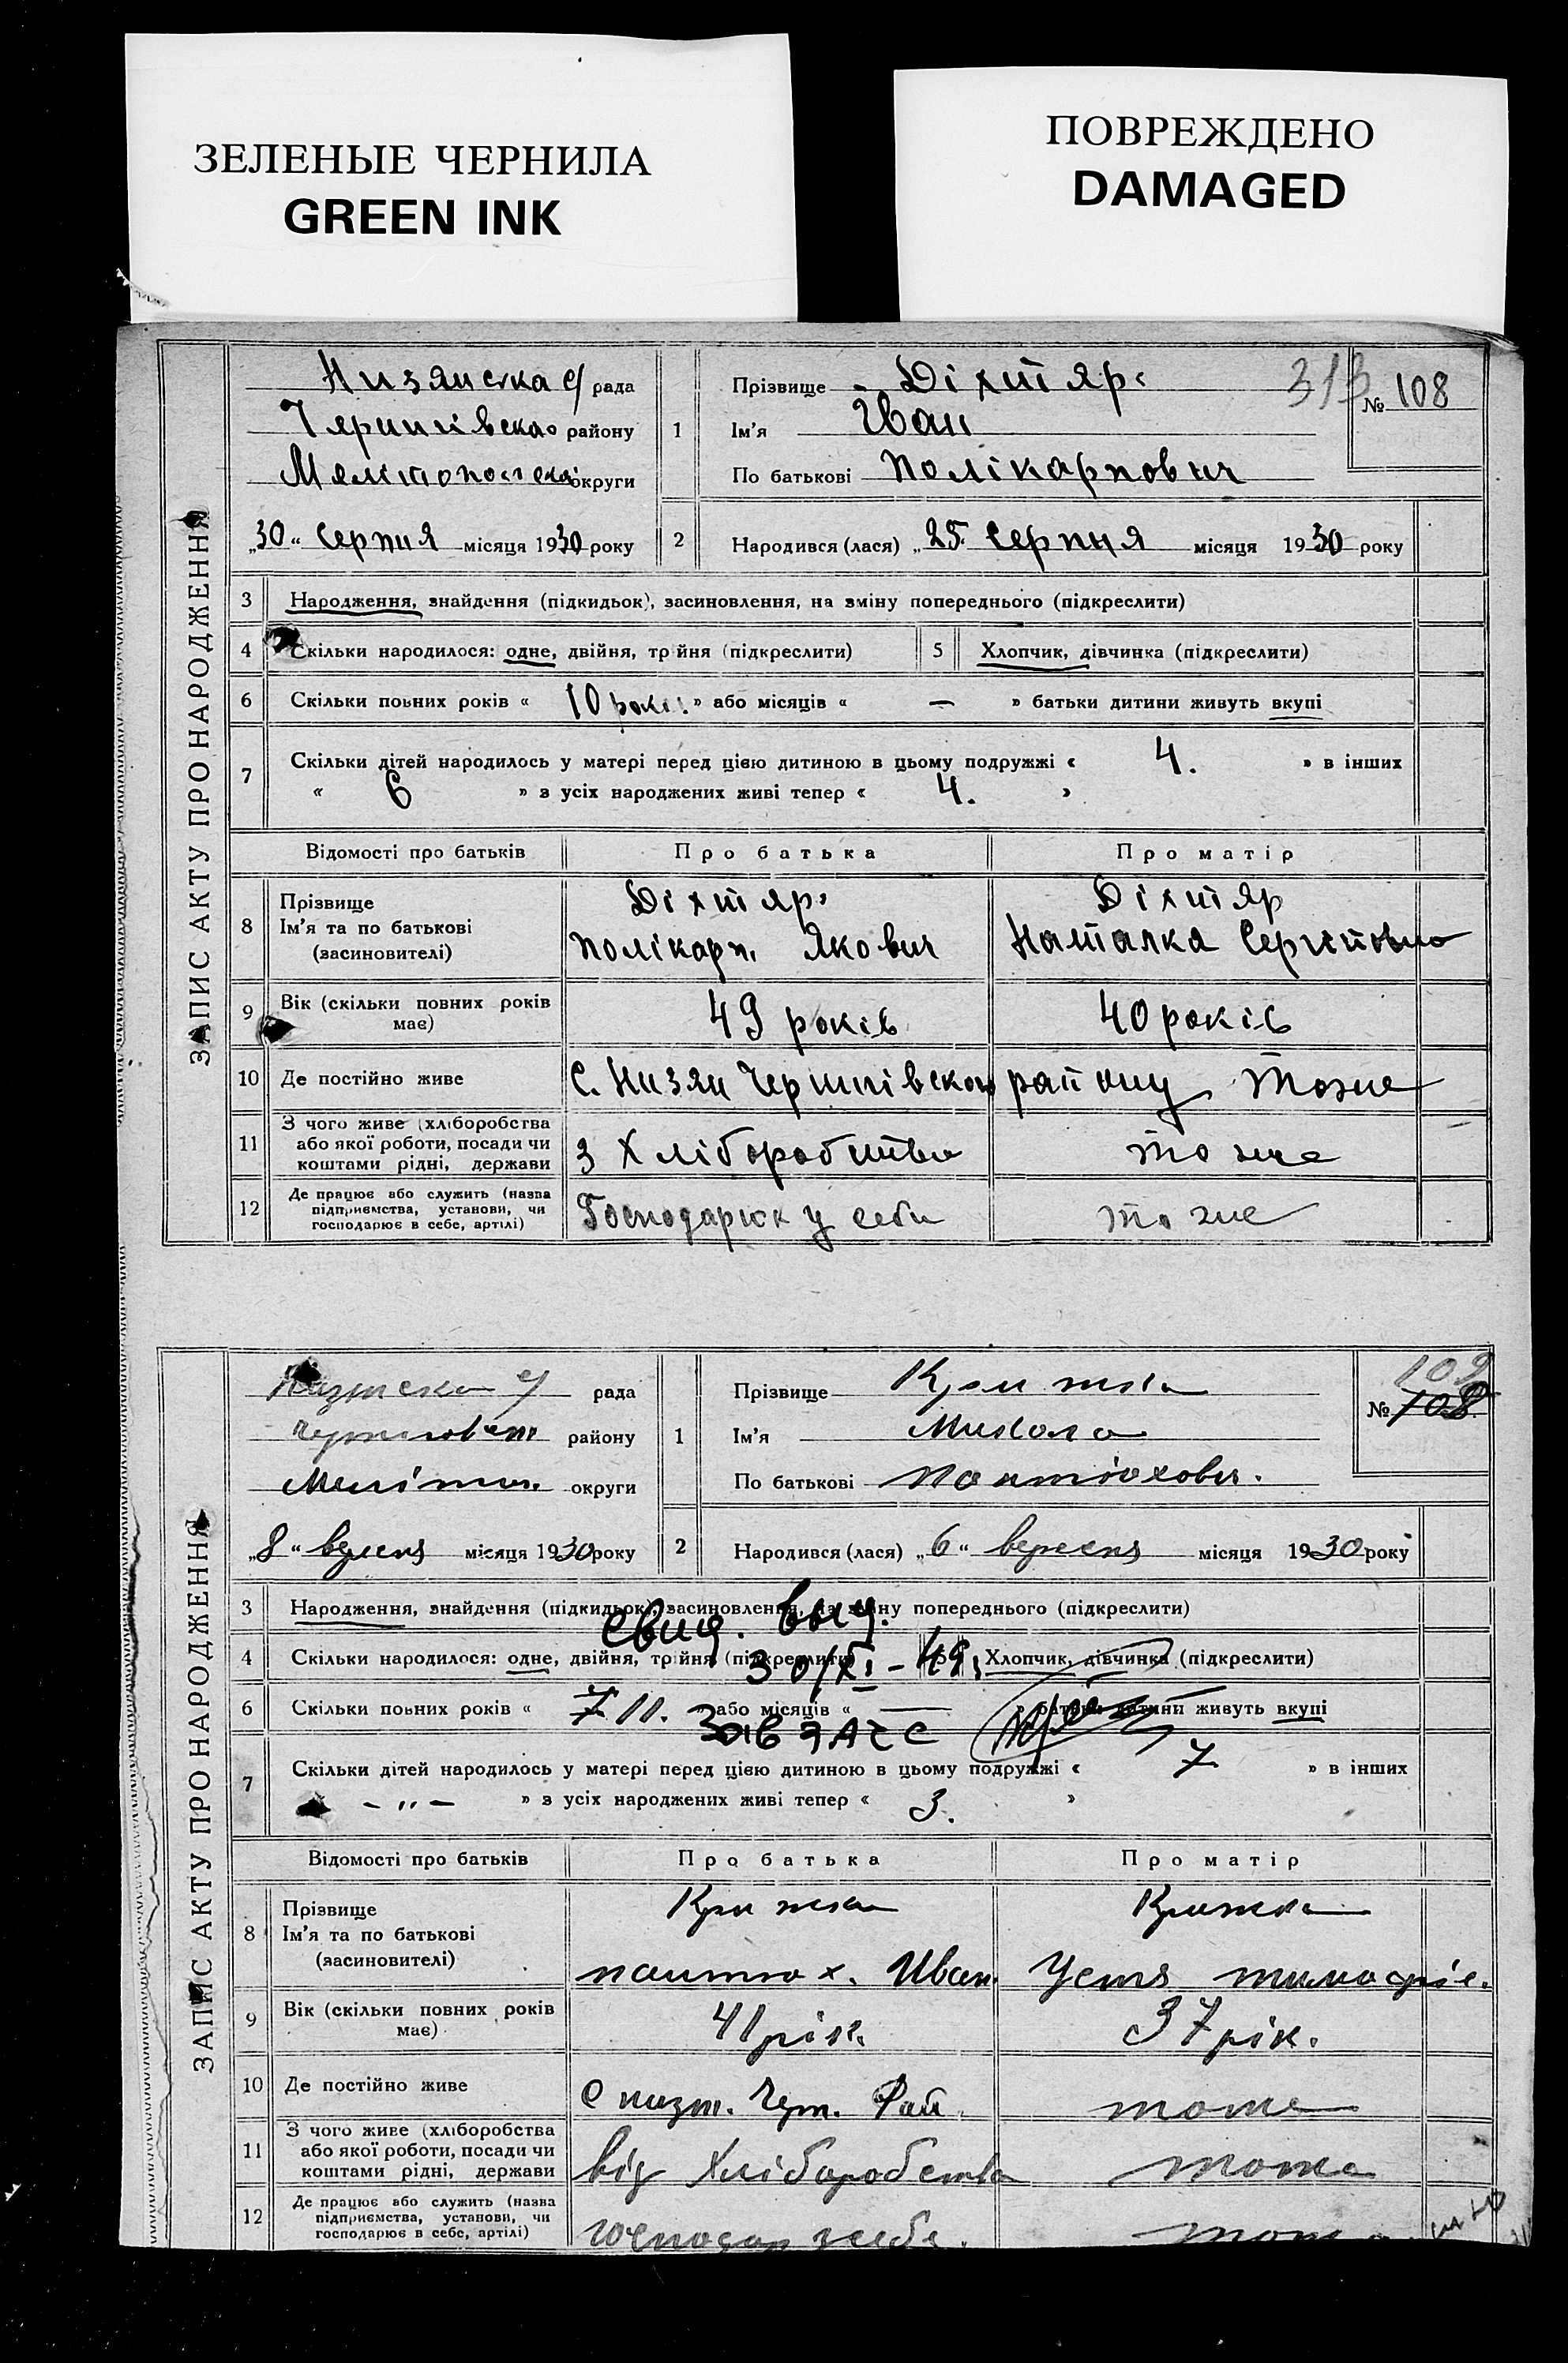 ЗЕЛЕНЫЕ ЧЕРНИЛА
GREEN INK
ПОВРЕЖДЕНО
DAMAGED
ЗАПИС АКТУ ПРО НАРОДЖЕННЯ
Низянська с/ рада
района району
округи
„30“ Серпня місяця 1930 року
1
Прізвище Діхтяр
Ім'я Іван
По батькові Полікарпович
313
№ 108
2
Народився (лася) „25“ Серпня місяця 1930 року
3 Народження, знайдення (підкидьок), засиновлення, на зміну попереднього (підкреслити)
4 Скільки народилося: одне, двійня, трійня (підкреслити) 5 Хлопчик, дівчинка (підкреслити)
6 Скільки повних років « 10 років » або місяців « — » батьки дитини живуть вкупі
7 Скільки дітей народилось у матері перед цією дитиною в цьому подружжі « 4. » в інших
« 6 » з усіх народжених живі тепер « 4. »
Відомості про батьків Про батька Про матір
8 Прізвище Ім'я та по батькові (засиновителі)
Діхтяр Діхтяр
Полікарп Якович Наталка
9 Вік (скільки повних років має) 49 років 40 років
10 Де постійно живе С. Низян Чернигівского району тоже
11 З чого живе (хліборобства або якої роботи, посади чи коштами рідні, держави З Хліборобства тоже
12 Де працює або служить (назва підприємства, установи, чи господарює в себе, артілі) Господарює у себе тоже
ЗАПИС АКТУ ПРО НАРОДЖЕННЯ
рада
району
округи
„8“ вересня місяця 1930 року
1
Прізвище Крижка
Ім'я Микола
По батькові Пантюхович.
109
№ 108
2
Народився (лася) „6“ вересня місяця 1930 року
3 Народження, знайдення (підкидьок), засиновлення, на зміну попереднього (підкреслити)
Свид. выд.
4 Скільки народилося: одне, двійня, трійня (підкреслити) 5 Хлопчик, дівчинка (підкреслити)
30/XI - 49
6 Скільки повних років « 7 11. » або місяців « — » батьки дитини живуть вкупі
Зав ЗАГС
7 Скільки дітей народилось у матері перед цією дитиною в цьому подружжі « 7 » в інших
« - „ - » з усіх народжених живі тепер « 3. »
Відомості про батьків Про батька Про матір
8 Прізвище Ім'я та по батькові (засиновителі)
Крижка Крижка
Пантюх. Иван. Устя Тимофіє.
9 Вік (скільки повних років має) 41 рік. 37 рік.
10 Де постійно живе С Низян. Черн. Рай. тоже
11 З чого живе (хліборобства або якої роботи, посади чи коштами рідні, держави від Хліборобства тоже
12 Де працює або служить (назва підприємства, установи, чи господарює в себе, артілі)